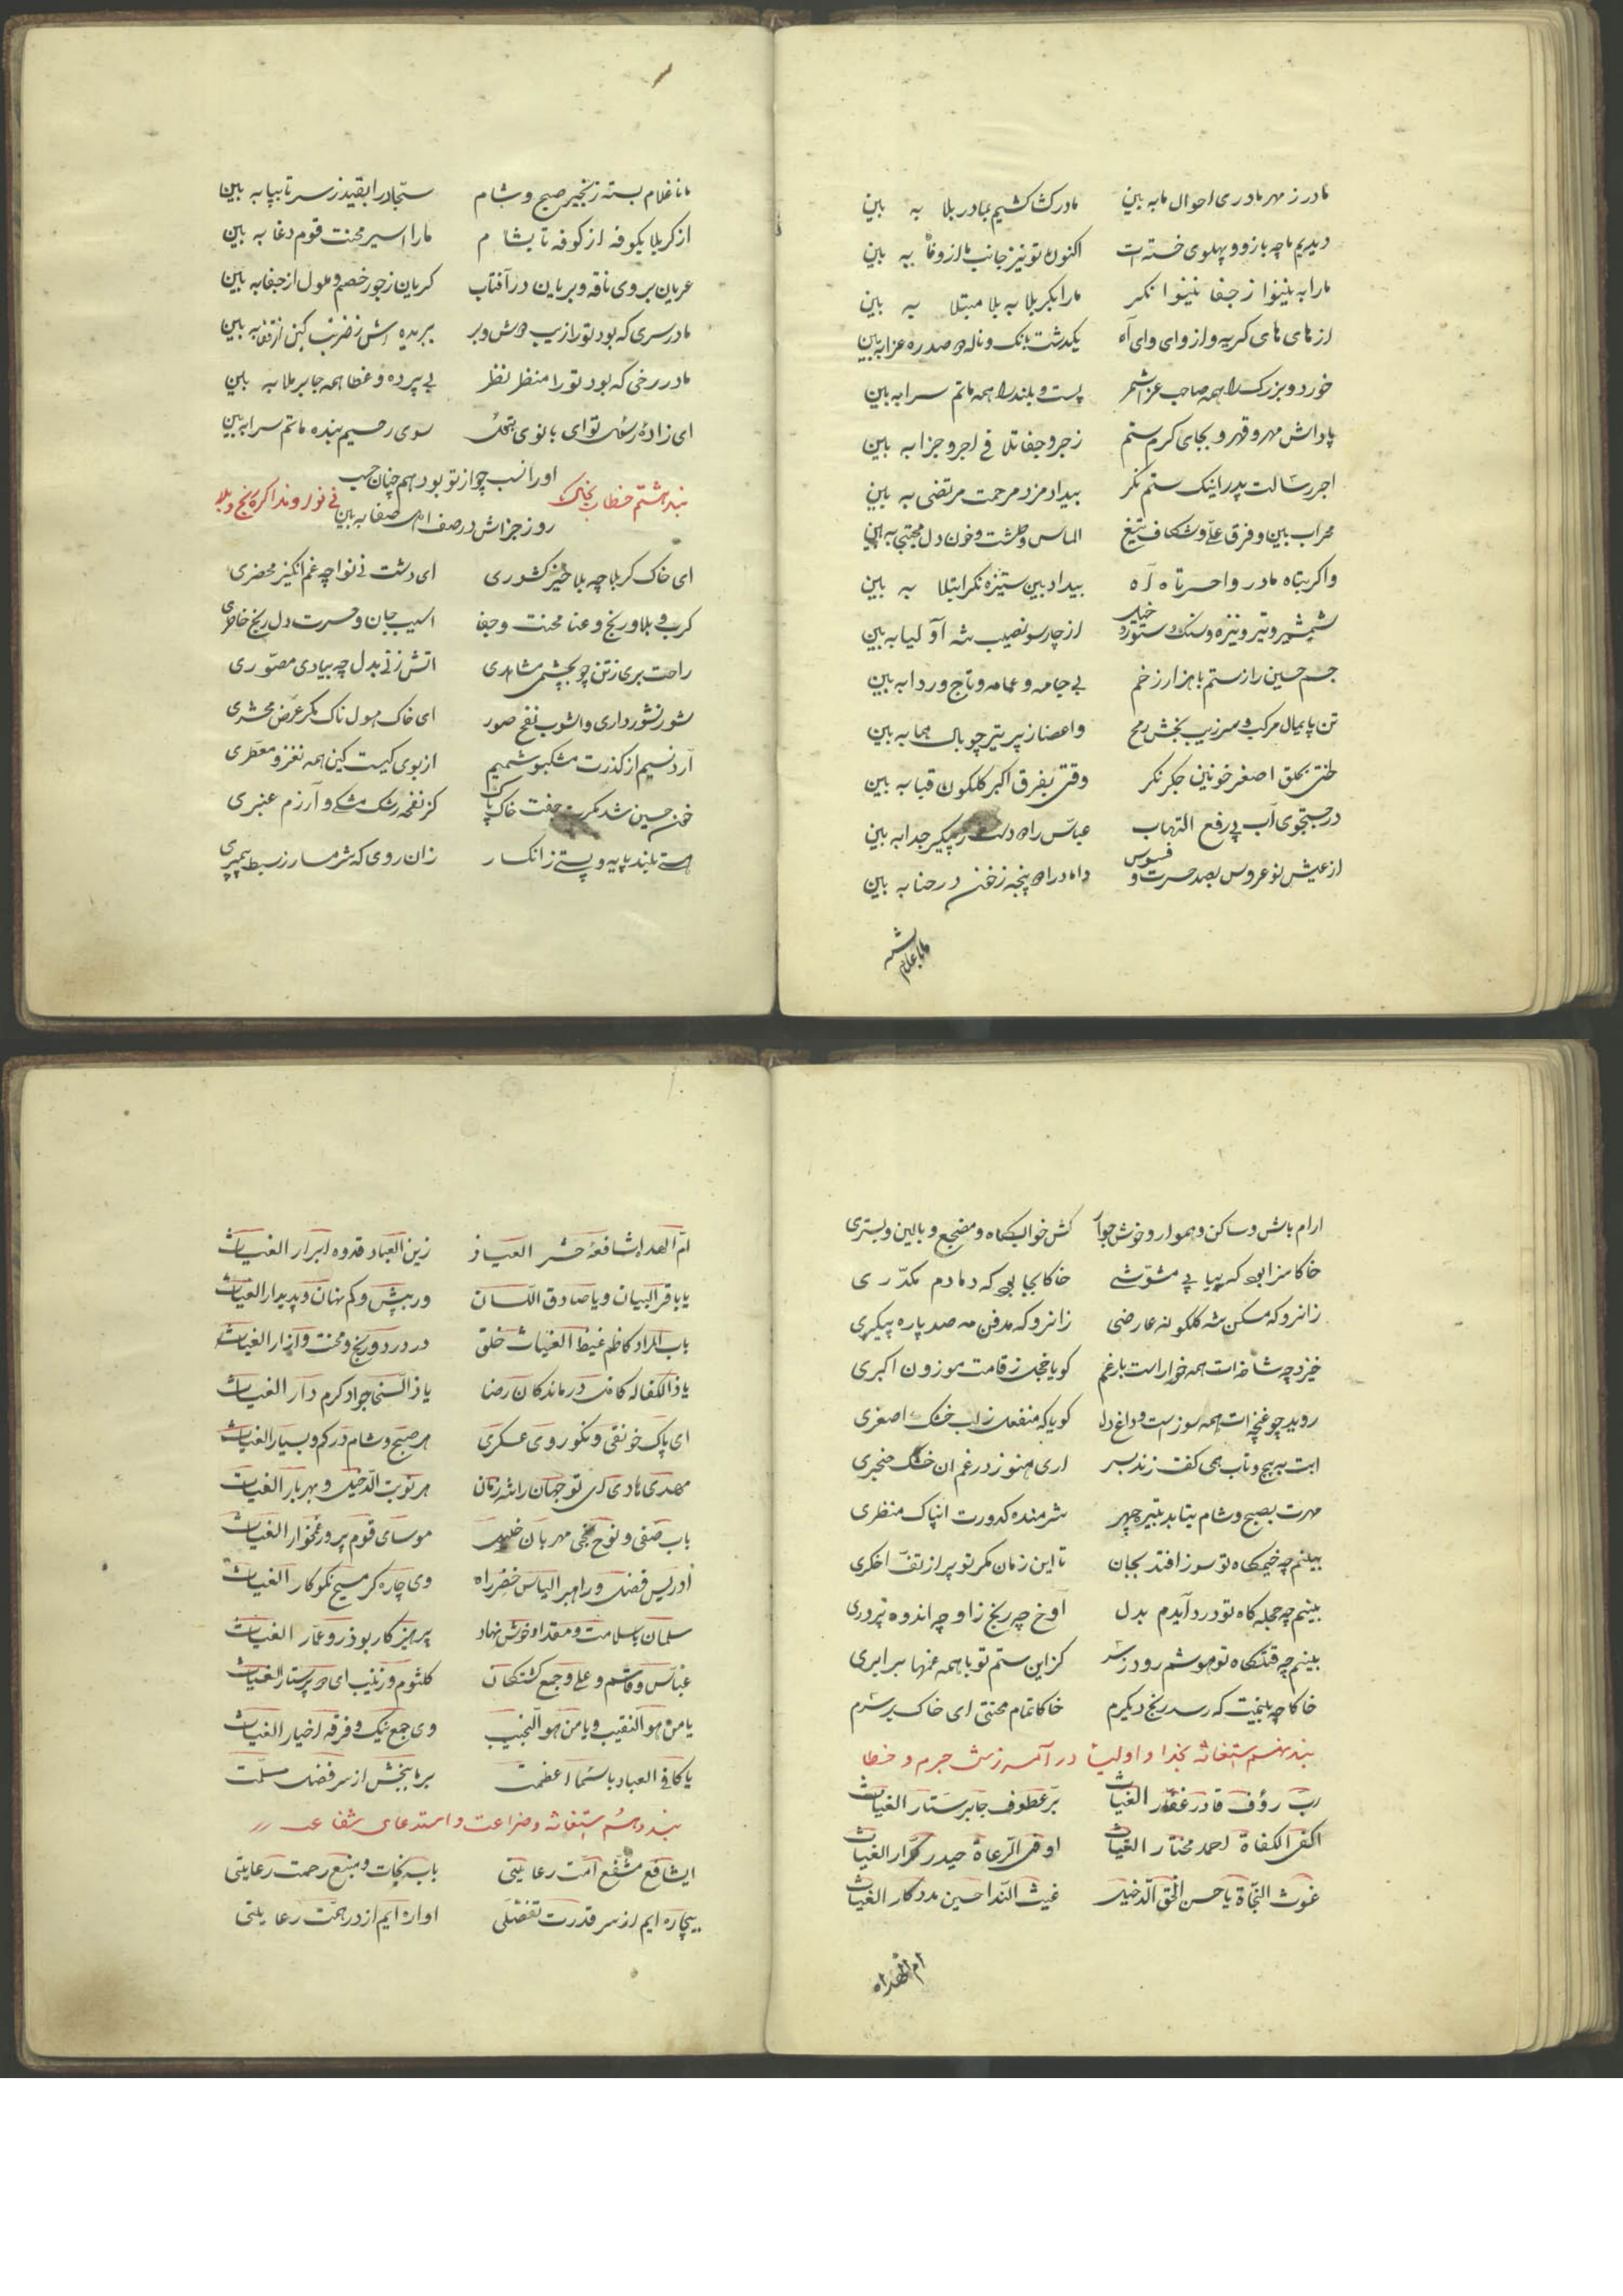 مادر ز مهر مادری احوال ما به بین مادر کشاکشیم بمادر بلا به بین
دیدیم ما چه بازو و پهلوی خسته ات اکنون تو نیز جانب ما از وفا به بین
ما را به نینوا ز جفا بینوا نکر ما را بکربلا به بلا مبتلا به بین
از های های کریه و از وای وای آه یکدشت بانک و ناله و صد ره عزا به بین
خورد و بزرک را همه صاحب عزا شمر پست و بلند را همه ماتم سرا به بین
پاداش مهر و قهر و بجای کرم ستم زجر و جفا تلافی اجر و جزا به بین
اجر رسالت پدر اینک ستم نکر بیداد مزد مرحمت مرتضی به بین
محراب بین و فرق علی و شکاف تیغ الماس و طشت و خون دل مجتبی به بین
واکربتاه مادر واحسرتاه آه بیداد بین ستیزه نکر ابتلا به بین
شمشیر و تیر و نیزه و سنک و ستور و از چارسو نصیب شه اولیا به بین
جسم حسین را ز ستم با هزار زخم بی جامه و عمامه و تاج و ردا به بین
تن پایمال مرکب و سر زیب بخش رمح واعضا ز پر تیر چو بال هما به بین
حلق اصغر خونین جکر نکر وقتی بفرق اکبر کلکون قبا به بین
در جستجوی آب پی رفع التهاب عباس را دست ز پیکر جدا به بین
از عیش نو عروس بصد حسرت و فسوس داماد را پنجه ز خون در حنا به بین
ما نا غلام بسته زنجیر صبح و شام سجاد را بقید ز سر تا بپا به بین
از کربلا بکوفه از کوفه تا بشام ما را اسیر محنت قوم دغا به بین
عریان بروی ناقه و بریان در آفتاب کریان ز جور خصم و ملول از جفا به بین
مادر سری که بود تو را زیب دوش و بر ببریده اش ز ضربت کین از قفا به بین
مادر رخی که بود تو را منظر نظر بی پرده و غطا همه جا برملا به بین
ای زاده رسول تو ای بانوی بتول سوی رحیم بنده ماتم سرا به بین
او را نسب چو از تو بود هم چنان حسب
بند هشتم خطاب بخاک نینوا و نداکره رنج و بلا
روز جزاش در صف اهل صفا به بین
ای خاک کربلا چه بلا خیز کشوری ای دشت نینوا چه غم انکیز محضری
کرب و بلا و رنج و عنا محنت و جفا اسیب جان و حسرت دل رنج خاطری
راحت بری ز تن چو بچشمی مشاهدی اتش زنی بدل چه بیادی مصوری
شور نشور داری و اشوب نفخ صور ای خاک هولناک مکر عرض محشری
آرد نسیم از کذرت مشکبو شمیم از بوی کیست کین همه نغز و معطری
خون حسین شد مکرت جفت خاک پاک کز نفخه رشک مشکی و آرزم عنبری
هستی بلند پایه و پستی ز انکسار زان روی که شرمسار ز سبط پیمبری
ارام باش و ساکن و هموار و خوش جوار کش خوابکاه و مضجع و بالین و بستری
خاکا سزا بود که پیاپی مشوشی خاکا بجا بود که دمادم مکدری
زانرو که مسکن شه کلکونه عارضی زانرو که مدفن مه صد پاره پیکری
خیزد چه شاخه ات همه خوار است بار غم کویا خجل ز قامت موزون اکبری
روید چو غنچه ات همه سوز است و داغ دل کویا که منفعل ز لب خشک اصغری
ابت به پیچ و تاب همی کف زند بسر اری هنوز در غم ان خشک حنجری
مهرت بصبح و شام بتابد بتیره چهر شرمنده کدورت ان پاک منظری
بینم چه خیمکاه تو سوز افتد بجان تا این زمان مکر تو پر از تف اخکری
بینم چه حجله کاه تو درد آیدم بدل آوخ چه رنج زا و چه اندوه پروری
بینم چه قتلکاه تو هوشم رود ز سر کز این ستم تو با همه غمها برابری
خاکا چه بینمت که رسد رنج دیکرم خاکا تمام محنتی ای خاک بر سرم
بند نهم استغاثه بخدا و اولیا در آمرزش جرم و خطا
رب رؤف قادر غفار الغیاث بر عطوف جابر ستار الغیاث
اکفی الکفاة احمد مختار الغیاث اوفی الرعاة حیدر کرار الغیاث
غوث النجاة یا حسن الحق الدخیل غیث الندا حسین مددکار الغیاث
ام الهداه
ام الهداه شافعه حشر العیاذ زین العباد قدوه ابرار الغیاث
یا باقر البیان و یا صادق اللسان در بیش و کم نهان و پدیدار الغیاث
باب المراد کاظم غیظ الغیاث خلق در درد و رنج و محنت و ازار الغیاث
یا ذا الکفاله کافل درماندکان رضا یا ذا السخا جواد کرم دار الغیاث
ای پاک خو نقی و نکو روی عسکری هر صبح و شام در کم و بسیار الغیاث
مهدی هادی ای تو جهان را شه زمان هر نوبت الدخیل و بهر بار الغیاث
باب صفی و نوح نجی مهربان خلیل موسای قوم پرور غمخوار الغیاث
ادریس فضل و راهبر الیاس خضر راه وی چاره کر مسیح نکوکار الغیاث
سلمان با سلامت و مقداد خوش نهاد پرهیزکار بوذر و عمار الغیاث
عباس و قاسم و علی و جمع کشتکان کلثوم و زینب ای دو پرستار الغیاث
یا من هو النقیب و یا من هو النجیب وی جمع نیک و فرقه اخیار الغیاث
یا کافی العباد باسماء اعظمت بر ما ببخش از سر فضل مسلمت
بند دهم استغاثه و ضراعت و استدعای شفاعت
ایشافع مشفع امت رعایتی باب نجات و منبع رحمت رعایتی
بیچاره ایم از سر قدرت تفضلی اواره ایم از در همت رعایتی